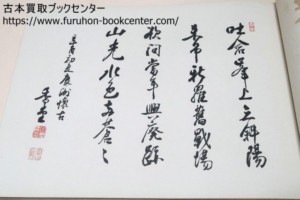 古本買取ブックセンター
https://www.furuhon-bookcenter.com/
吐含峯上立斜陽
来弔新羅舊戰場
欲問當年興廢跡
山光水色両蒼々
懐古